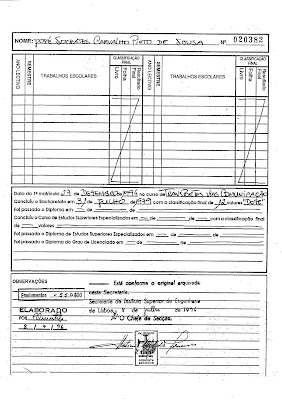 NOME: JOSÉ SÓCRATES CARVALHO PINTO DE SOUSA Nº 020382
ANO LECTIVO
SEMESTRE
TRABALHOS ESCOLARES
CLASSIFICAÇÃO FINAL
Livro
Folha
Resultado Final
ANO LECTIVO
SEMESTRE
TRABALHOS ESCOLARES
CLASSIFICAÇÃO FINAL
Livro
Folha
Resultado Final
Data da 1ª matrícula 23 de DEZEMBRO de no curso de TRANSPORTES VIAS COMUNICAÇÃO
Concluiu o Bacharelato em 31 de JULHO de 1979 com a classificação final de 12 valores (DOZE)
Foi passado o Diploma em de de
Concluiu o Curso de Estudos Superiores Especializados em de de com a classificação final
de valores.
Foi passado o Diploma de Estudos Superiores Especializados em de de
Foi passado o Diploma do Grau de Licenciado em de de
OBSERVAÇÕES
Está conforme o original arquivado
nesta Secretaria.
Emolumentos
Secretaria do Instituto Superior de Engenharia
ELABORADO
de Lisboa, 8 de Julho de 1996
POR
O Chefe de Secção,